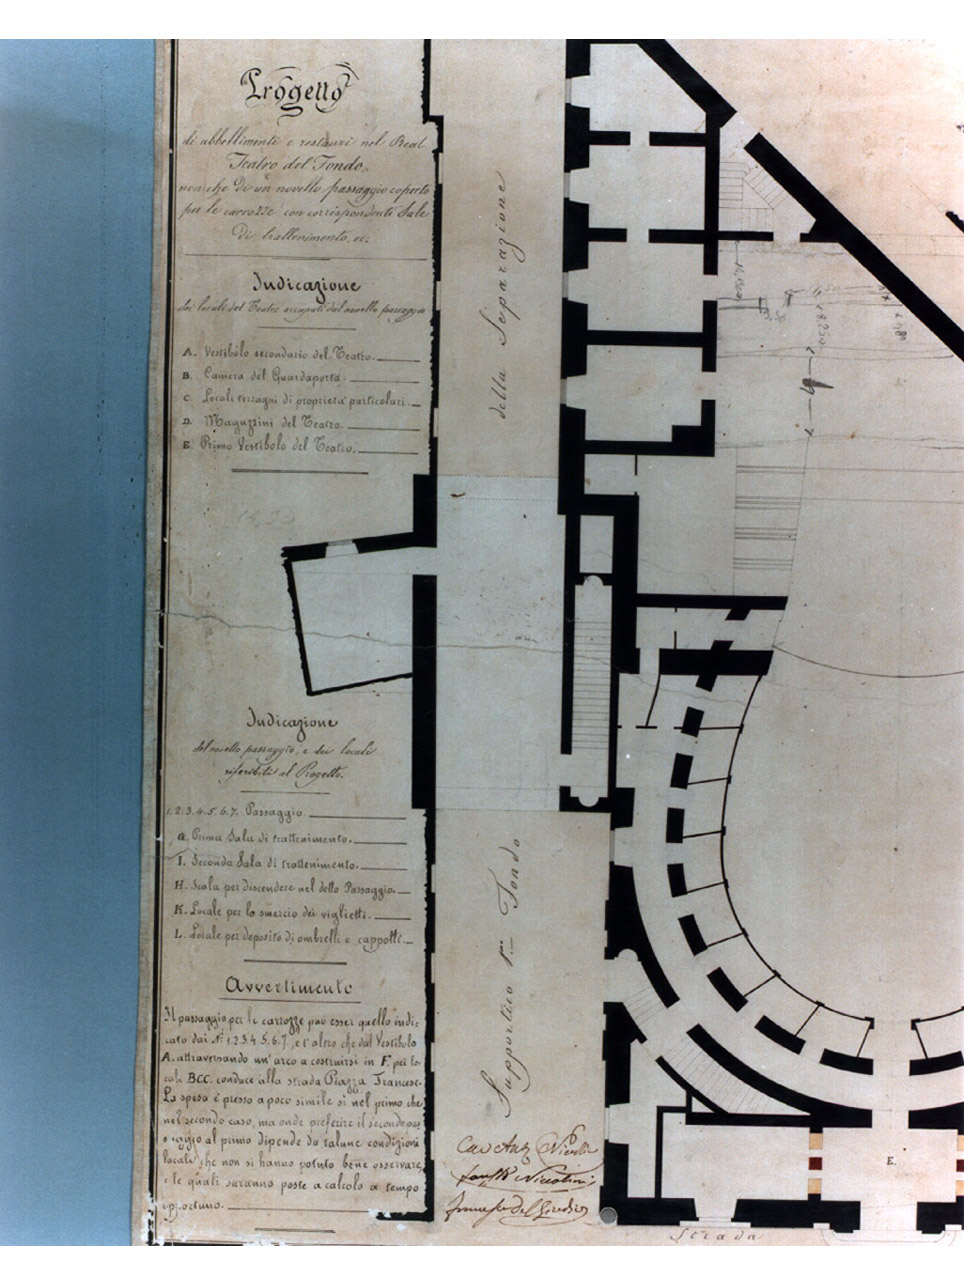 Progetto
di abbellimenti e restauri nel Real
Teatro del Fondo,
non che di un novello passaggio coperto
per le carrozze con corrispondenti Sale
di trattenimento ec:
Indicazione
dei locali del Teatro occupati dal novello passaggio
A. Vestibolo secondario del Teatro.
B. Camera del Guardaporta.
C. Locali terragni di proprietà particolari.
D. Magazzini del Teatro.
E. Primo Vestibolo del Teatro.
Indicazione
del novello passaggio, e dei locali
riferibili al Progetto.
1.2.3.4.5.6.7. Passaggio.
G. Prima Sala di trattenimento.
I. Seconda Sala di trattenimento.
H. Scala per discendere nel detto Passaggio.
K. Locale per lo smercio dei viglietti.
L. Locale per deposito di ombrelli e cappotti.
Avvertimento
Il passaggio per le carrozze può esser quello indi-
cato dai Nⁱ 1.2.3.4.5.6.7, e l'altro che dal Vestibolo
A. attraversando un'arco a costruirsi in F. pei lo-
cali BCC. conduce alla strada Piazza Francese.
La spesa è presso a poco simile sì nel primo, che
nel secondo caso, ma onde preferire il secondo pas-
saggio al primo dipende da talune condizioni
locali che non si hanno potuto bene osservare,
e le quali saranno poste a calcolo a tempo
opportuno.
della Separazione
Supportico Fondo
Cav Ant Niccolini
Fausto Niccolini
Francesco Del Giudice
E.
Strada